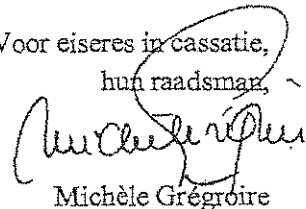 Voor eiseres in cassatie,
hun raadsman,
Michèle Grégroire